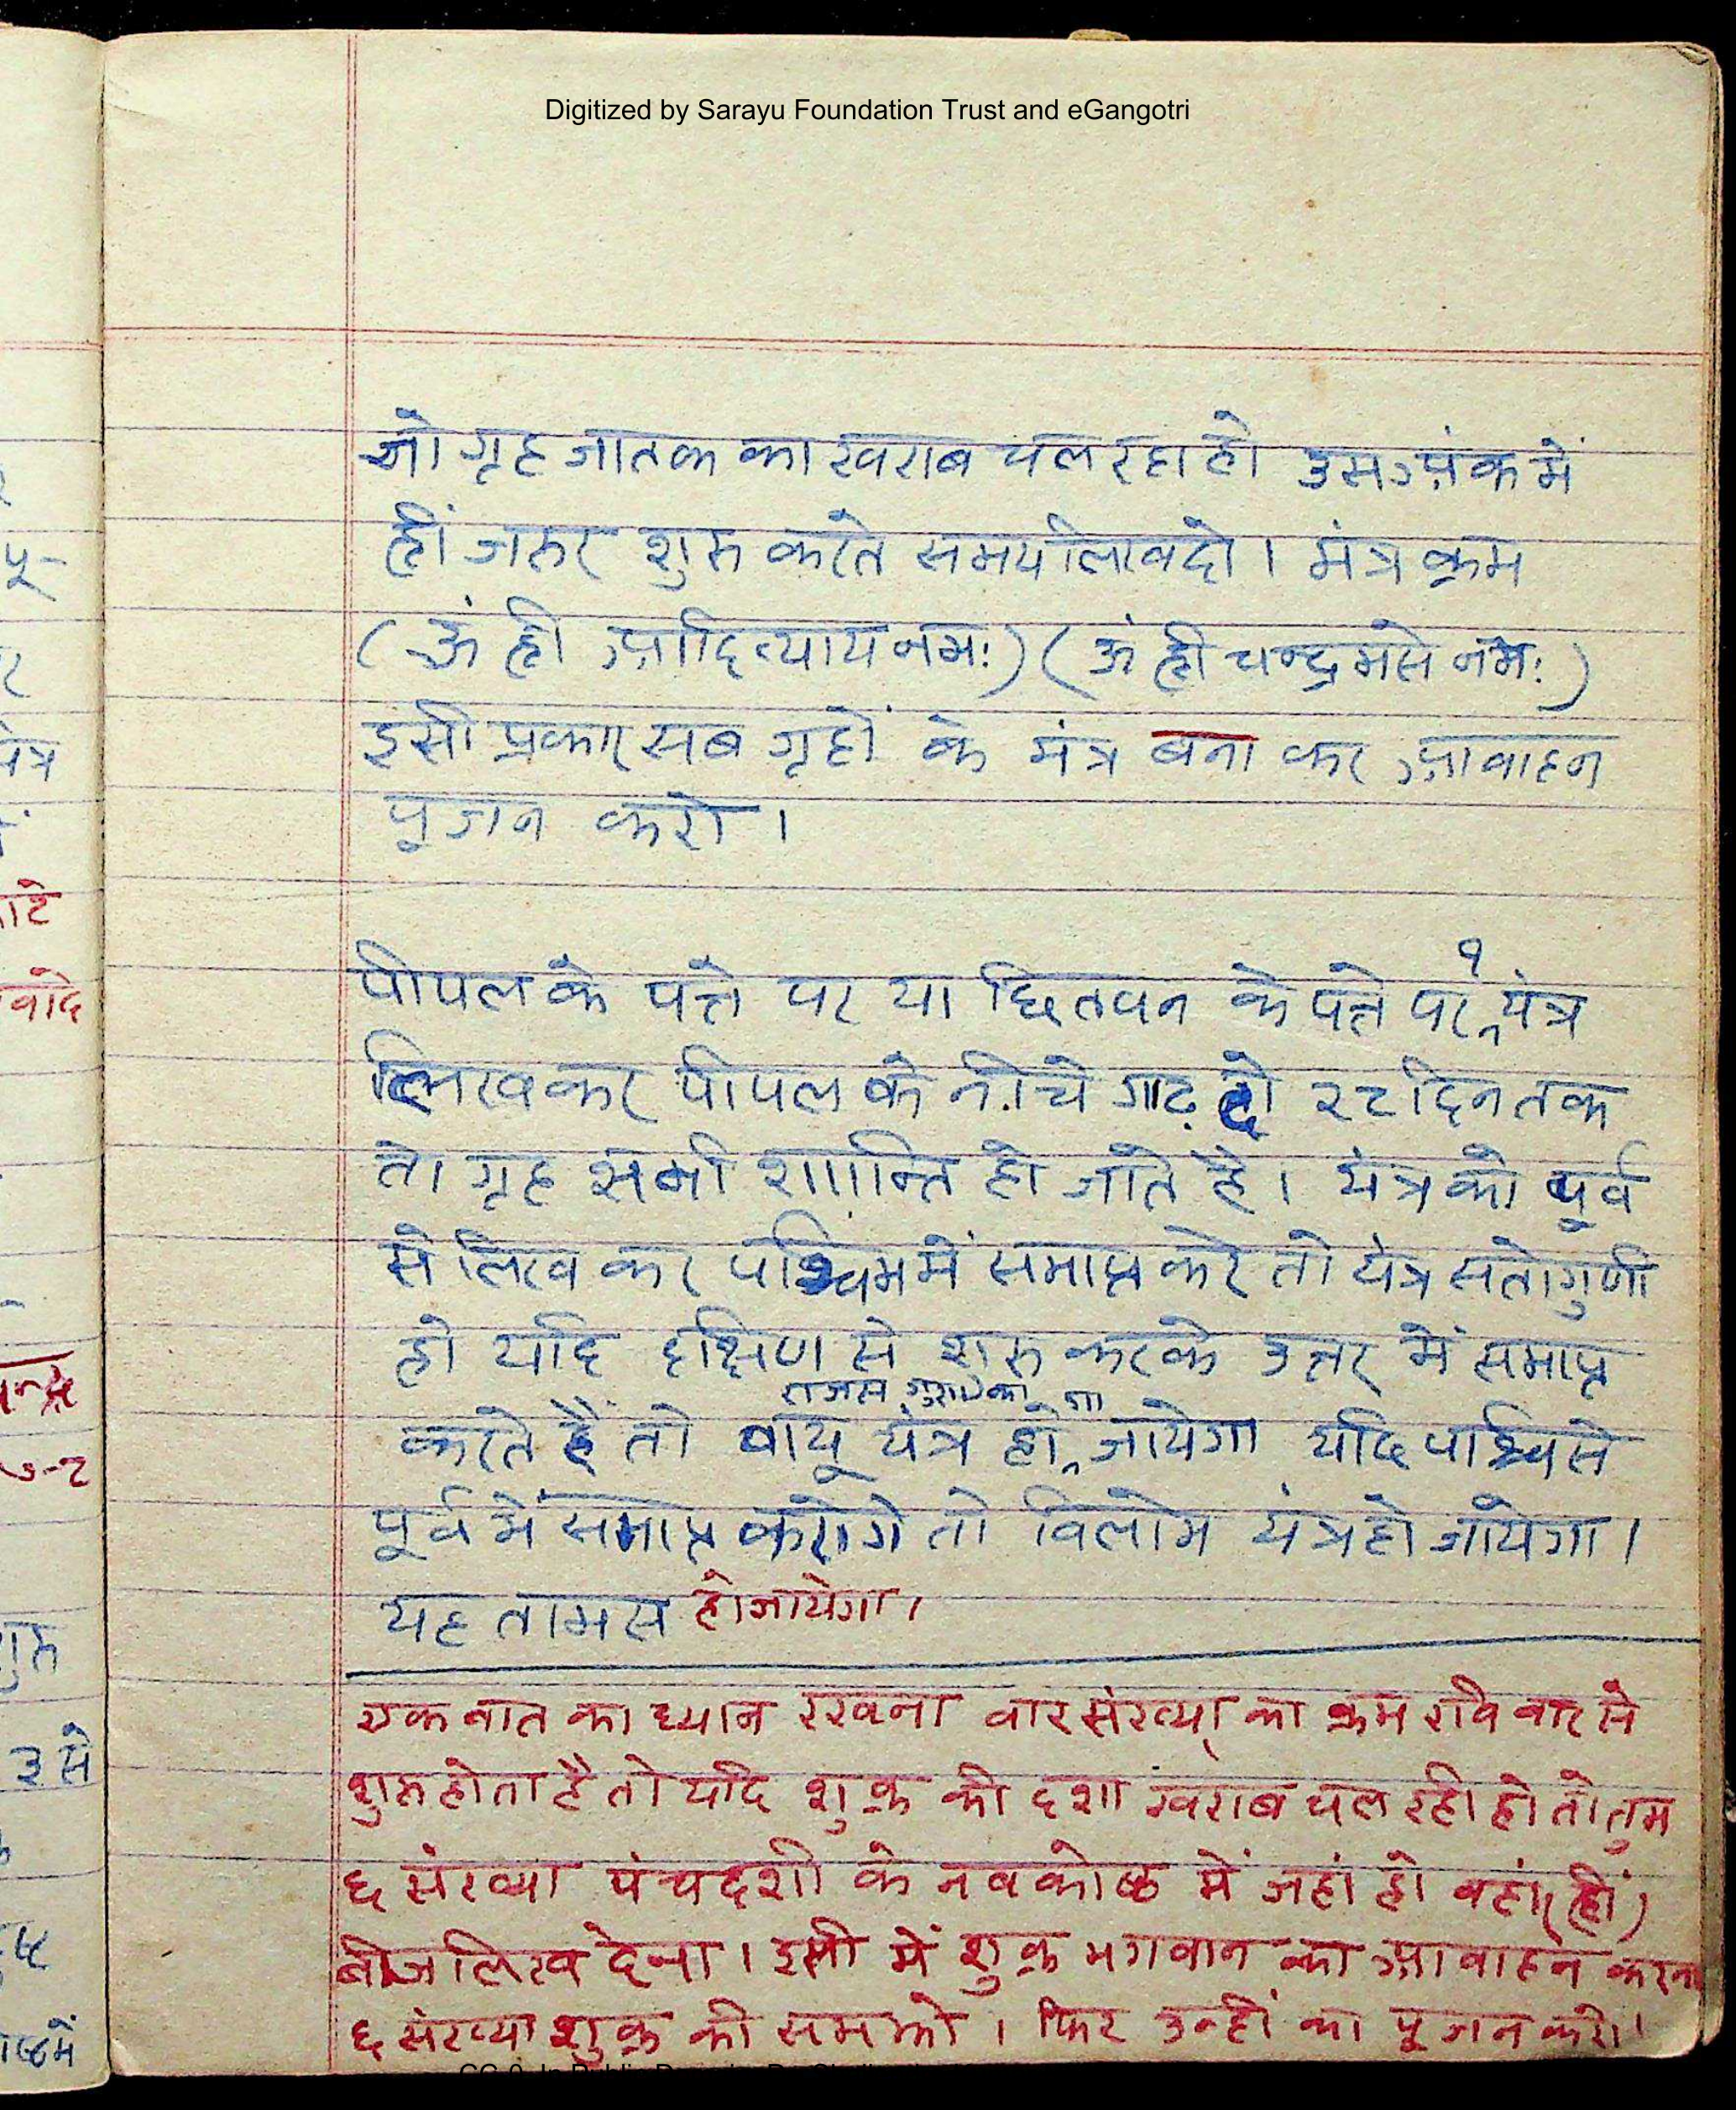 Digitized by Sarayu Foundation Trust and eGangotri
जो गृह जातक का खराब चल रहा हो उस अंक में
ह्रीं जरुर शुरु करते समय लिख दो । मंत्र क्रम
( ऊं ह्रीं आदित्याय नमः ) ( ऊं ह्री चन्द्रमसे नमः )
इसी प्रकार सब गृहों के मंत्र बना कर आवाहन
पूजन करो ।
पीपल के पत्ते पर या छितवन के पत्ते पर १ यंत्र
लिखकर पीपल के नीचे गाढ़ दो २८ दिन तक
तो गृह सभी शान्ति हो जाते है । यंत्र को पूर्व
से लिख कर पश्चिम में समाप्त करे तो यंत्र सतोगुणी
हो यदि दक्षिण से शुरु करके उत्तर में समाप्त
राजस गुण का
करते है तो वायु यंत्र हो जायेगा यदि पश्चि से
पूर्व में समाप्त करोगे तो विलोम यंत्र हो जायेगा ।
यह तामस हो जायेगा ।
एक बात का ध्यान रखना वार संख्या का क्रम रवि वार से
शुरु होता है तो यदि शुक्र की दशा खराब चल रही हो तो तुम
६ संख्या पंचदशी के नवकोष्ठ में जहां हो वहां (ह्रीं)
बीज लिख देना । इसी में शुक्र भगवान का आवाहन करना
६ संख्या शुक्र की समझो । फिर उन्हीं का पूजन करो ।
पू-
यंत्र
गुरु
3 से